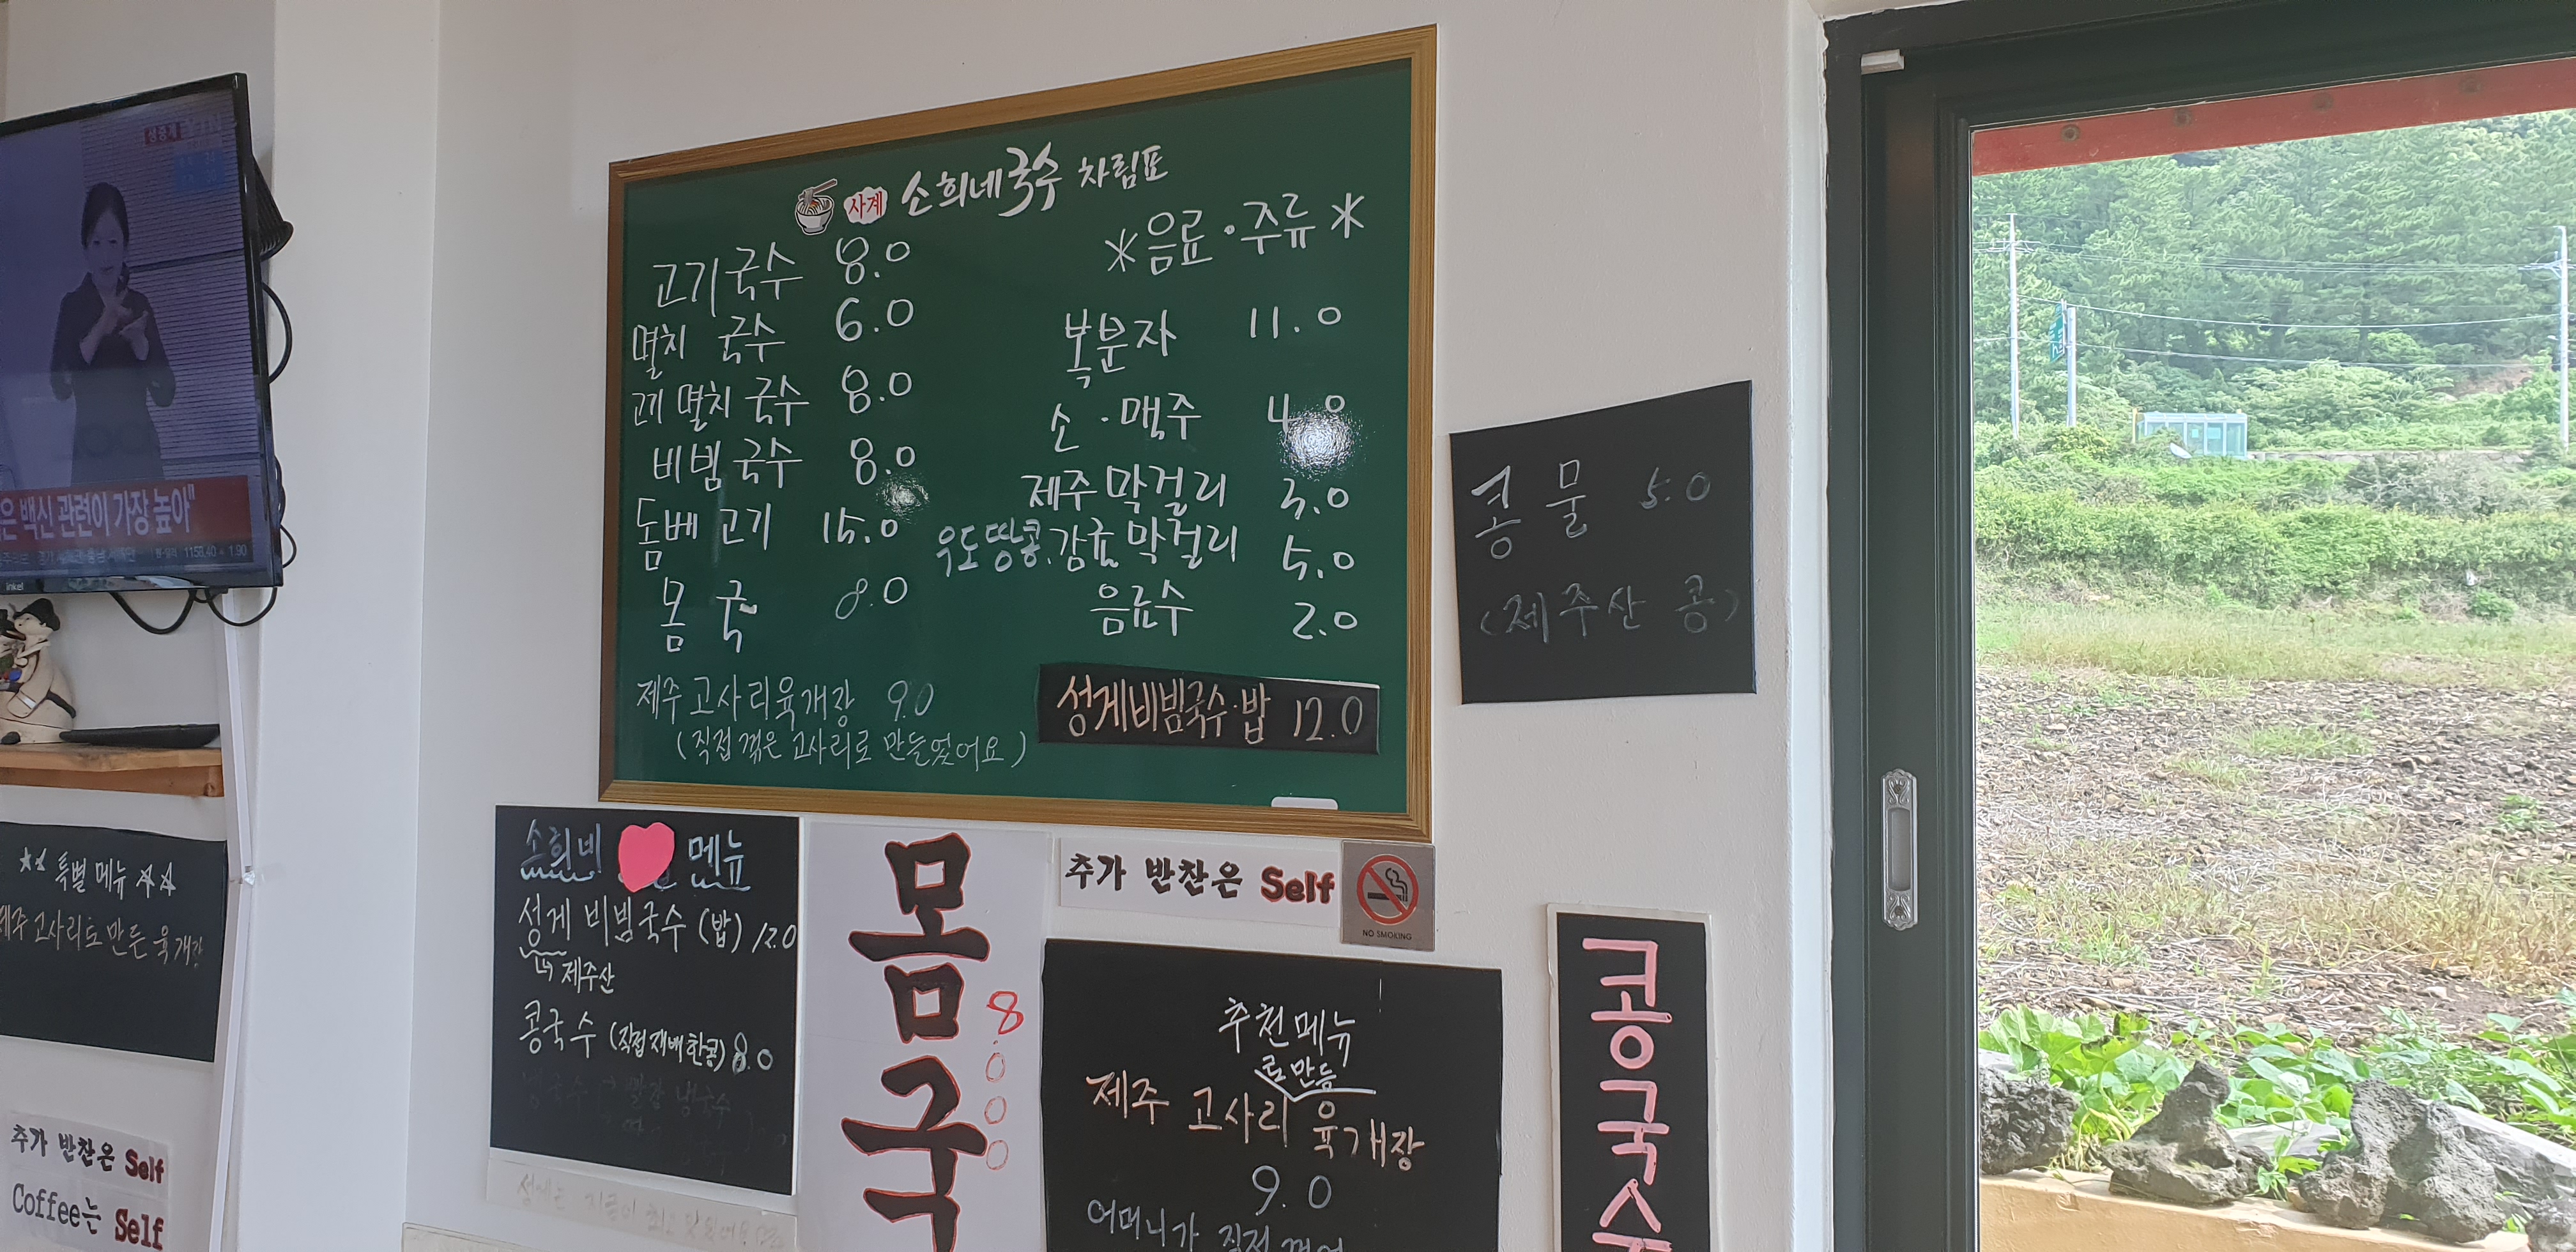 사계 소희네국수 차림표
고기국수 8.0
멸치 국수 6.0
고기 멸치 국수 8.0
비빔국수 8.0
돔베 고기 15.0
몸 국 8.0
제주고사리육개장 9.0
(직접 꺾은 고사리로 만들었어요)
*음료·주류*
복분자 11.0
소·맥주 4.0
제주막걸리 3.0
우도땅콩.감귤막걸리 5.0
음료수 2.0
성게비빔국수·밥 12.0
콩 물 5.0
(제주산 콩)
은 백신 관련이 가장 높아"
1158.40 1.90
inkel
특별 메뉴
제주 고사리로 만든 육개장
추가 반찬은 Self
Coffee는 Self
소희네 메뉴
성게 비빔국수 (밥) 12.0
제주산
콩국수 (직접재배한콩) 8.0
몸국
8.000
추가 반찬은 Self
NO SMOKING
추천메뉴
로만든
제주 고사리 육개장
9.0
어머니가 직접 꺾어
콩국수